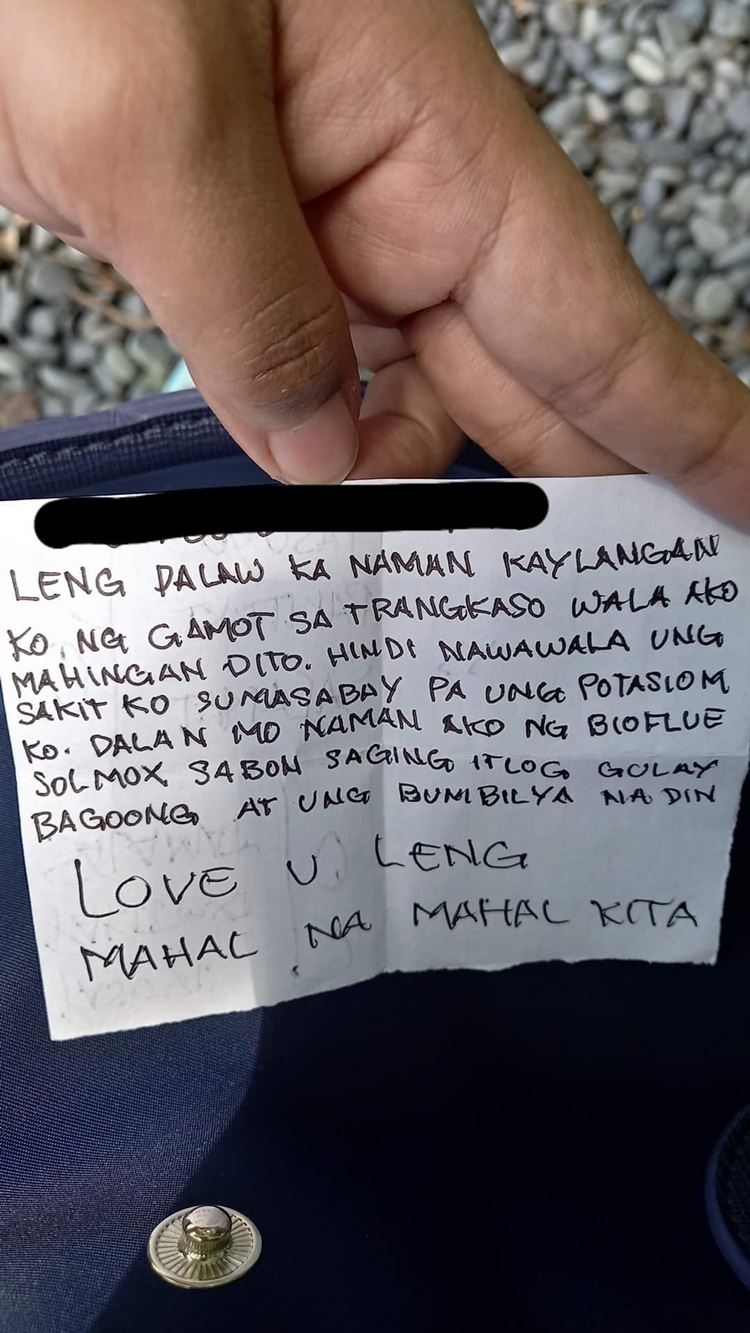 LENG DALAW KA NAMAN KAYLANGAN
KO NG GAMOT SA TRANGKASO WALA AKO
MAHINGAN DITO. HINDI NAWAWALA UNG
SAKIT KO SUMASABAY PA UNG POTASIOM
KO. DALAN MO NAMAN AKO NG BIOFLUE
SOLMOX SABON SAGING ITLOG GULAY
BAGOONG AT UNG BUMBILYA NA DIN
LOVE U LENG
MAHAL NA MAHAL KITA